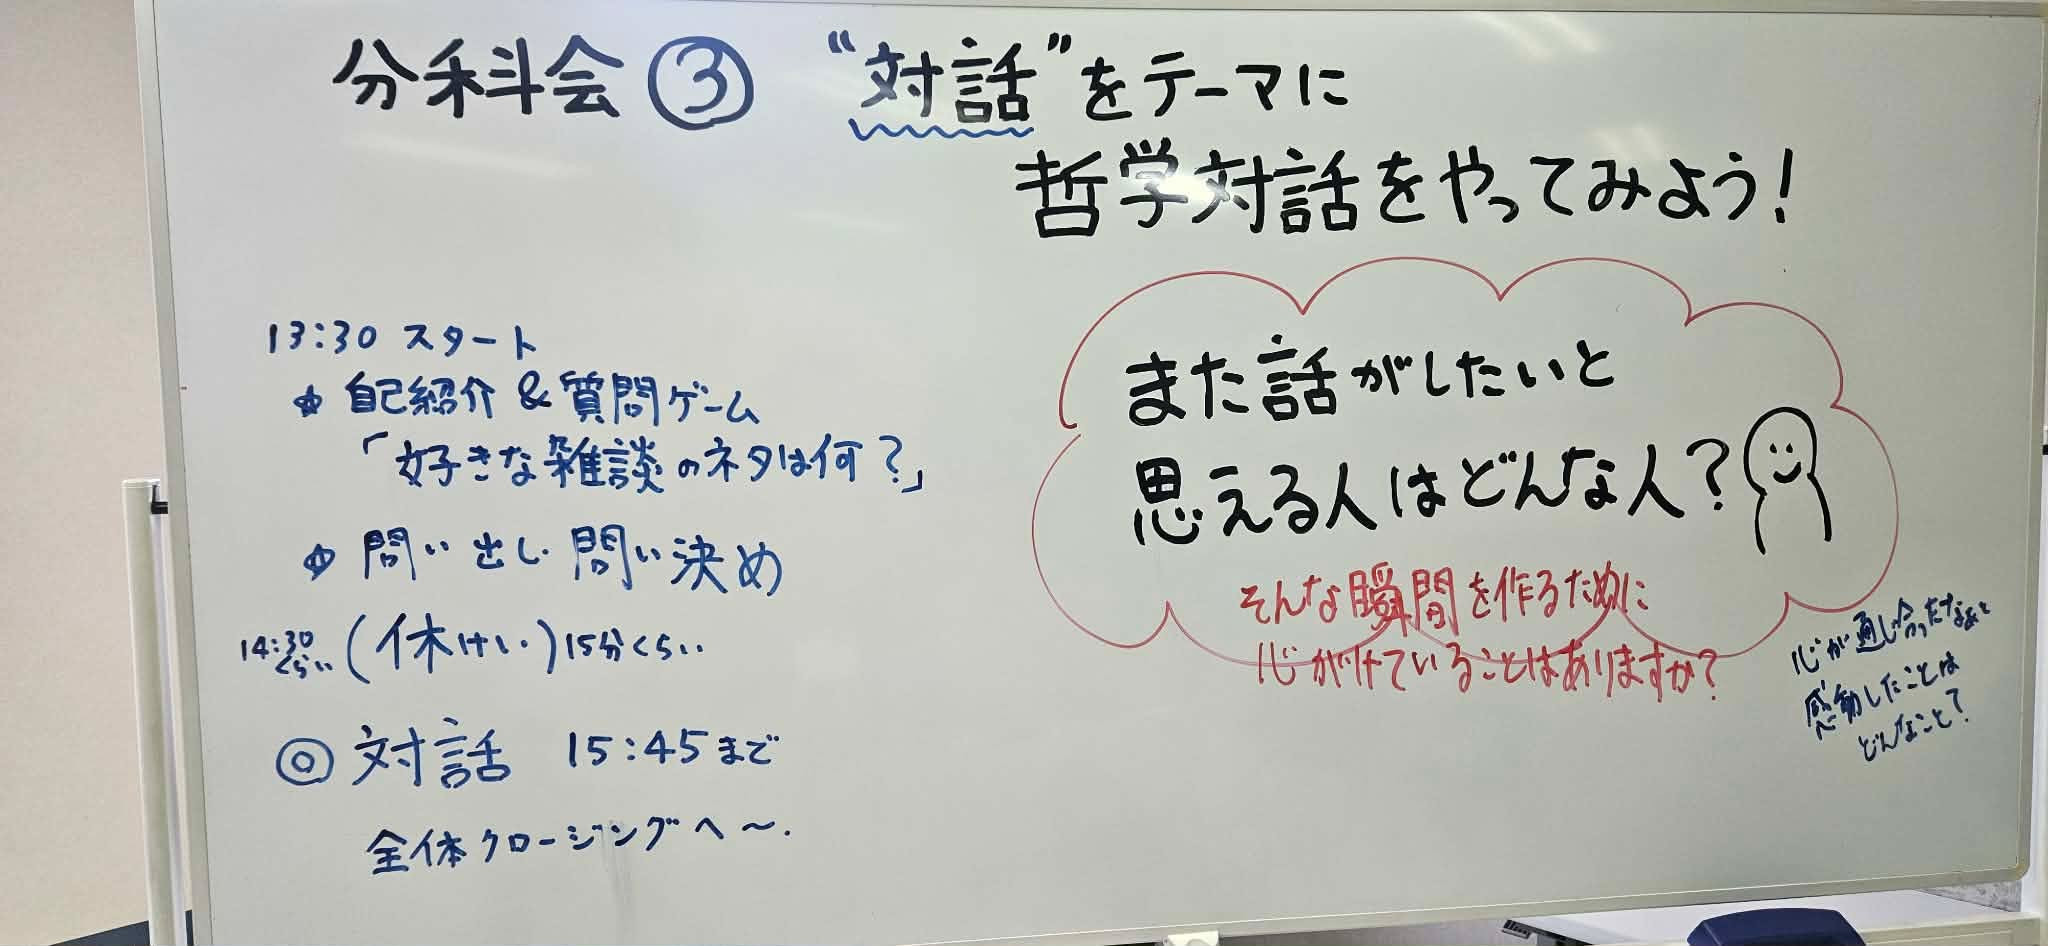 分科会 ③ “対話”をテーマに
哲学対話をやってみよう!
13:30 スタート
☆ 自己紹介 & 質問ゲーム
「好きな雑談のネタは何?」
☆ 問い出し・問い決め
14:30くらい (休けい) 15分くらい
◎ 対話 15:45まで
全体クロージングへ〜.
また話がしたいと
思える人はどんな人?
そんな瞬間を作るために
心がけていることはありますか?
心が通じ合ったなぁと
感動したことは
どんなこと?